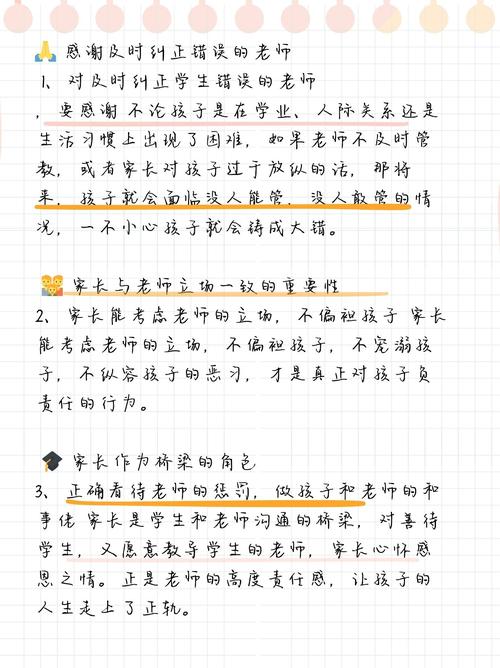 🙏 感谢及时纠正错误的老师
1、对及时纠正学生错误的老师
，要感谢 不论孩子是在学业、人际关系还是
生活习惯上出现了困难，如果老师不及时管
教，或者家长对孩子过于放纵的话，那将
来，孩子就会面临没人能管、没人敢管的情
况，一不小心孩子就会铸成大错。
👨‍👩‍👧‍👦 家长与老师立场一致的重要性
2、家长能考虑老师的立场，不偏袒孩子 家长
能考虑老师的立场，不偏袒孩子，不宠溺孩
子，不纵容孩子的恶习，才是真正对孩子负
责任的行为。
🎓 家长作为桥梁的角色
3、正确看待老师的惩罚，做孩子和老师的和
事佬 家长是学生和老师沟通的桥梁，对善待
学生，又愿意教导学生的老师，家长心怀感
恩之情。正是老师的高度责任感，让孩子的
人生走上了正轨。